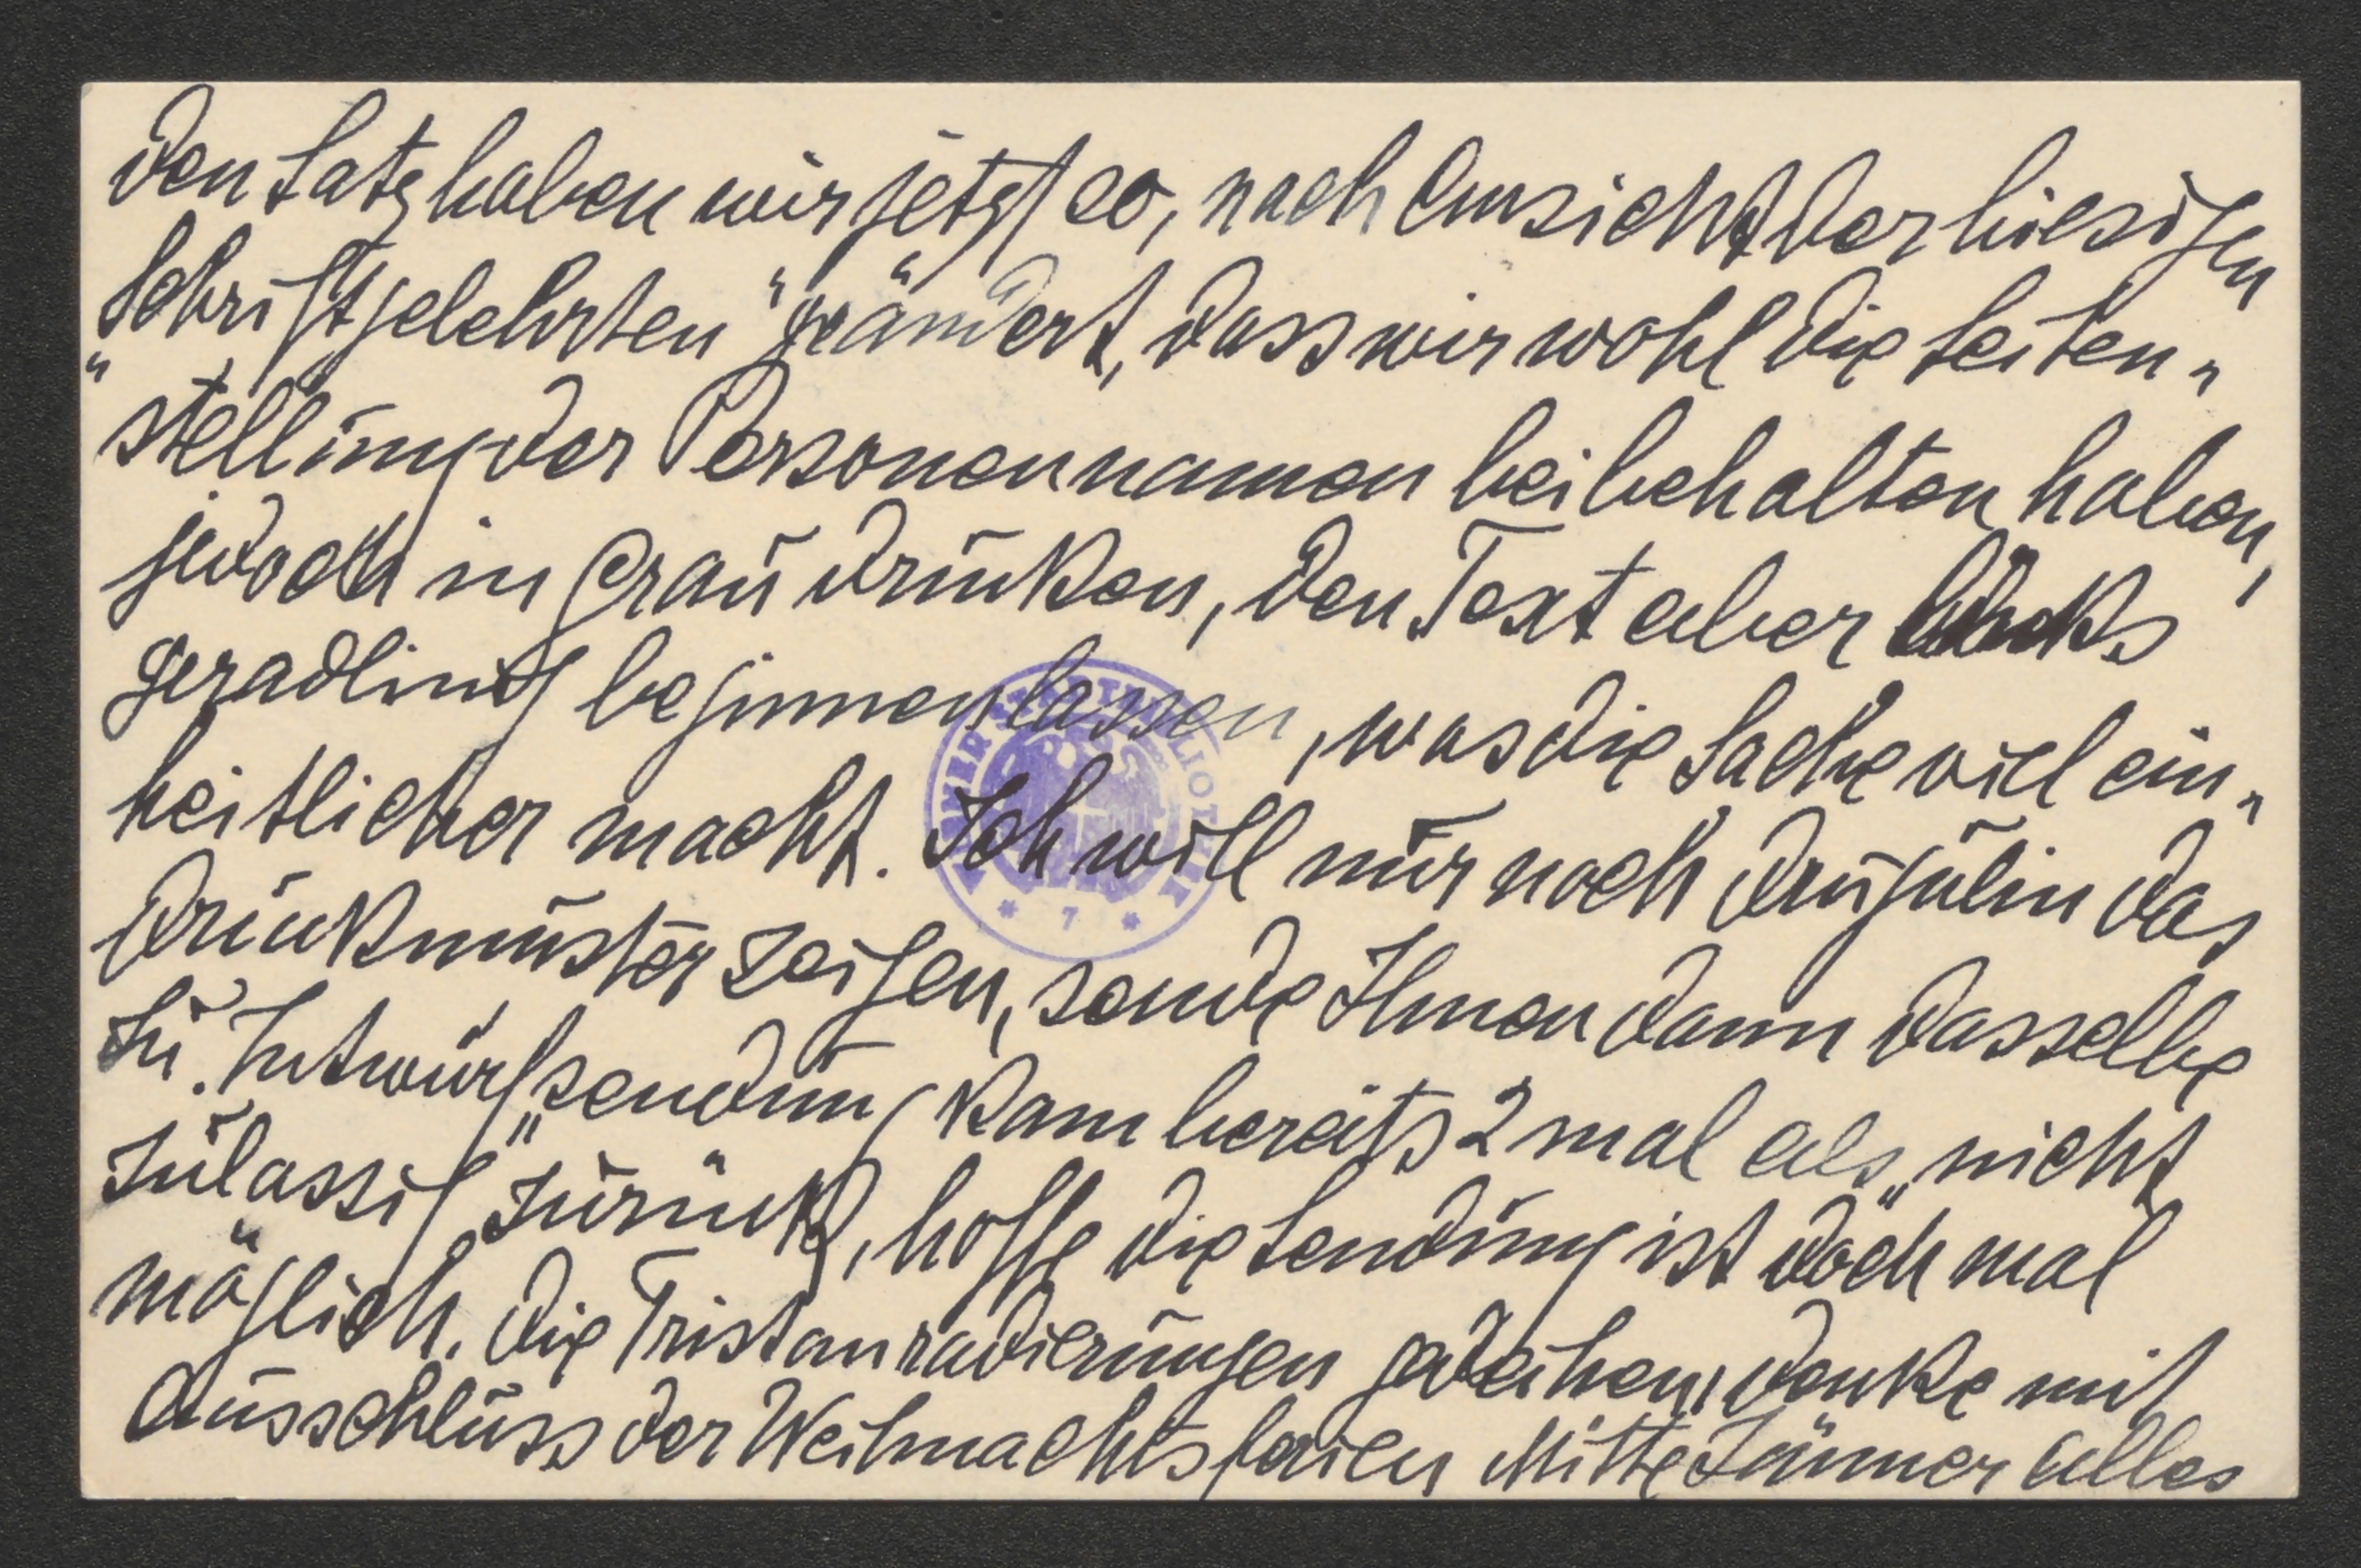 Den Satz haben wir jetzt so, nach Einsicht der hiesigen
„Schriftgelehrten" geändert, dass wir wohl die Seiten-
stellung der Personennamen beibehalten haben,
jedoch in Grau druken, den Text aber
geradlinig beginnen lassen, was die Sache viel ein-
heitlicher macht. Ich will nur noch Drugulin das
Drukmuster zeigen, sende Ihnen dann dasselbe
zu. Entwurfsendung kam bereits 2 mal als „nicht
zulassig" zurück, hoffe die Sendung ist doch mal
möglich. Die Tristanradierungen gedeihen, denke mit
Ausschluss der Weihnachtsferien Mitte Jänner alles
* 7 *